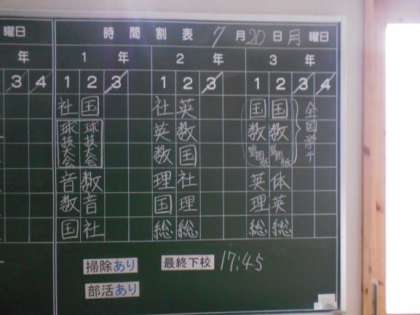 曜日 時間割表 7月20日月曜日
年 1年 2年 3年
3 4 1 2 3 1 2 3 1 2 3 4
社 国 社 英 国 国 全国学テ
球技大会 球技大会 英 数 数 数
数 国
音 数 理 社 英 体
数 音 国 理 理 英
国 社 総 総 総 総
掃除あり 最終下校 17:45
部活あり